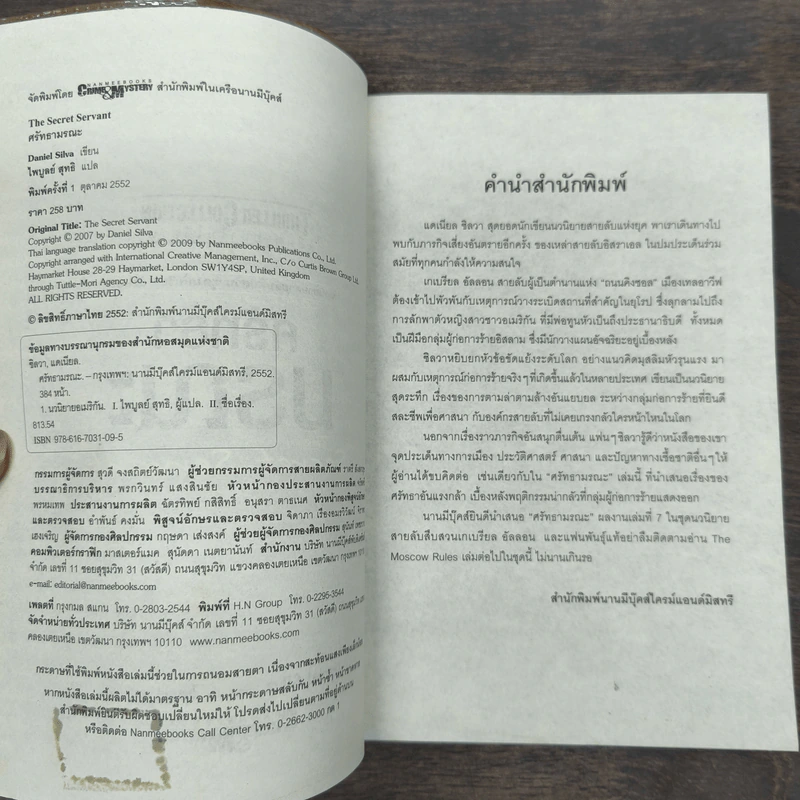 จัดพิมพ์โดย NANMEEBOOKS CRIME & MYSTERY สำนักพิมพ์ในเครือนานมีบุ๊คส์
The Secret Servant
ศรัทธามรณะ
Daniel Silva เขียน
ไพบูลย์ สุทธิ แปล
พิมพ์ครั้งที่ 1 ตุลาคม 2552
ราคา 258 บาท
Original Title: The Secret Servant
Copyright © 2007 by Daniel Silva
Thai language translation copyright © 2009 by Nanmeebooks Publications Co., Ltd.
Copyright arranged with International Creative Management, Inc., C/o Curtis Brown Group Ltd.
Haymarket House 28-29 Haymarket, London SW1Y4SP, United Kingdom
through Tuttle-Mori Agency Co., Ltd.
ALL RIGHTS RESERVED.
© ลิขสิทธิ์ภาษาไทย 2552: สำนักพิมพ์นานมีบุ๊คส์ไครม์แอนด์มิสทรี
ข้อมูลทางบรรณานุกรมของสำนักหอสมุดแห่งชาติ
ซิลวา, แดเนียล.
ศรัทธามรณะ. -- กรุงเทพฯ: นานมีบุ๊คส์ไครม์แอนด์มิสทรี, 2552.
384 หน้า.
1. นวนิยายอเมริกัน. I. ไพบูลย์ สุทธิ, ผู้แปล. II. ชื่อเรื่อง.
813.54
ISBN 978-616-7031-09-5
กรรมการผู้จัดการ สุวดี จงสถิตย์วัฒนา ผู้ช่วยกรรมการผู้จัดการสายผลิตภัณฑ์
บรรณาธิการบริหาร พรกวินทร์ แสงสินชัย หัวหน้ากองประสานงานการผลิต
พรหมเทพ ประสานงานการผลิต ฉัตรทิพย์ กสิสิทธิ์ อนุสรา ตาธเนศ หัวหน้ากองพิสูจน์อักษร
และตรวจสอบ อำพันธ์ คงมั่น พิสูจน์อักษรและตรวจสอบ จิดาภา เรืองอมรวิวัฒน์
เฮงเจริญ ผู้จัดการกองศิลปกรรม กฤษดา เส่งสงค์ ผู้ช่วยผู้จัดการกองศิลปกรรม
คอมพิวเตอร์กราฟิก มาสเตอร์แมค สุนัดดา เนตยานันท์ สำนักงาน บริษัท นานมีบุ๊คส์
จำกัด เลขที่ 11 ซอยสุขุมวิท 31 (สวัสดี) ถนนสุขุมวิท แขวงคลองเตยเหนือ เขตวัฒนา กรุงเทพฯ
e-mail: editorial@nanmeebooks.com
เพลตที่ กรุงกมล สแกน โทร. 0-2803-2544 พิมพ์ที่ H.N Group โทร. 0-2295-3544
จัดจำหน่ายทั่วประเทศ บริษัท นานมีบุ๊คส์ จำกัด เลขที่ 11 ซอยสุขุมวิท 31 (สวัสดี) ถนนสุขุมวิท แขวง
คลองเตยเหนือ เขตวัฒนา กรุงเทพฯ 10110 www.nanmeebooks.com
กระดาษที่ใช้พิมพ์หนังสือเล่มนี้ช่วยในการถนอมสายตา เนื่องจากสะท้อนแสงเพียงเล็กน้อย
หากหนังสือเล่มนี้ผลิตไม่ได้มาตรฐาน อาทิ หน้ากระดาษสลับกัน หน้าซ้ำ หน้าขาดหาย
สำนักพิมพ์ยินดีรับผิดชอบเปลี่ยนใหม่ให้ โปรดส่งไปเปลี่ยนตามที่อยู่ด้านบน
หรือติดต่อ Nanmeebooks Call Center โทร. 0-2662-3000 กด 1
คำนำสำนักพิมพ์
แดเนียล ซิลวา สุดยอดนักเขียนนวนิยายสายลับแห่งยุค พาเราเดินทางไป
พบกับภารกิจเสี่ยงอันตรายอีกครั้ง ของเหล่าสายลับอิสราเอล ในปมประเด็นร่วม
สมัยที่ทุกคนกำลังให้ความสนใจ
เกเบรียล อัลลอน สายลับผู้เป็นตำนานแห่ง “ถนนคิงซอล” เมืองเทลอาวีฟ
ต้องเข้าไปพัวพันกับเหตุการณ์วางระเบิดสถานที่สำคัญในยุโรป ซึ่งลุกลามไปถึง
การลักพาตัวหญิงสาวชาวอเมริกัน ที่มีพ่อทูนหัวเป็นถึงประธานาธิบดี ทั้งหมด
เป็นฝีมือกลุ่มผู้ก่อการร้ายอิสลาม ซึ่งมีนักวางแผนอัจฉริยะอยู่เบื้องหลัง
ซิลวาหยิบยกหัวข้อขัดแย้งระดับโลก อย่างแนวคิดมุสลิมหัวรุนแรง มา
ผสมกับเหตุการณ์ก่อการร้ายจริงๆ ที่เกิดขึ้นแล้วในหลายประเทศ เขียนเป็นนวนิยาย
สุดระทึก เรื่องของการตามล่าตามล้างอันแยบยล ระหว่างกลุ่มก่อการร้ายที่ยินดี
สละชีพเพื่อศาสนา กับองค์กรสายลับที่ไม่เคยเกรงกลัวใครหน้าไหนในโลก
นอกจากเรื่องราวภารกิจอันสนุกตื่นเต้น แฟนๆ ซิลวารู้ดีว่าหนังสือของเขา
จุดประเด็นทางการเมือง ประวัติศาสตร์ ศาสนา และปัญหาทางเชื้อชาติอื่นๆ ให้
ผู้อ่านได้ขบคิดต่อ เช่นเดียวกับใน “ศรัทธามรณะ” เล่มนี้ ที่นำเสนอเรื่องของ
ศรัทธาอันแรงกล้า เบื้องหลังพฤติกรรมน่ากลัวที่กลุ่มผู้ก่อการร้ายแสดงออก
นานมีบุ๊คส์ยินดีนำเสนอ “ศรัทธามรณะ” ผลงานเล่มที่ 7 ในชุดนวนิยาย
สายลับสืบสวนเกเบรียล อัลลอน และแฟนพันธุ์แท้อย่าลืมติดตามอ่าน The
Moscow Rules เล่มต่อไปในชุดนี้ ไม่นานเกินรอ
สำนักพิมพ์นานมีบุ๊คส์ไครม์แอนด์มิสทรี